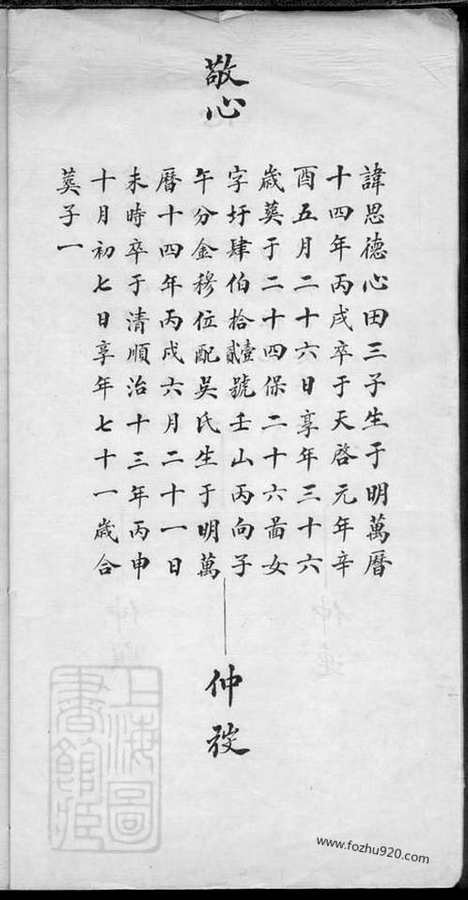 敬心
諱思德心田三子生于明萬曆
十四年丙戌卒于天啓元年辛
酉五月二十六日享年三十六
歲葬于二十四保二十六啚女
字圩肆伯拾貳壹號壬山丙向子
午分金穆位配吳氏生于明萬
曆十四年丙戌六月二十一日
未時卒于清順治十三年丙申
十月初七日享年七十一歲合
葬子一
仲
上海圖
書館藏
www.fozhu920.com